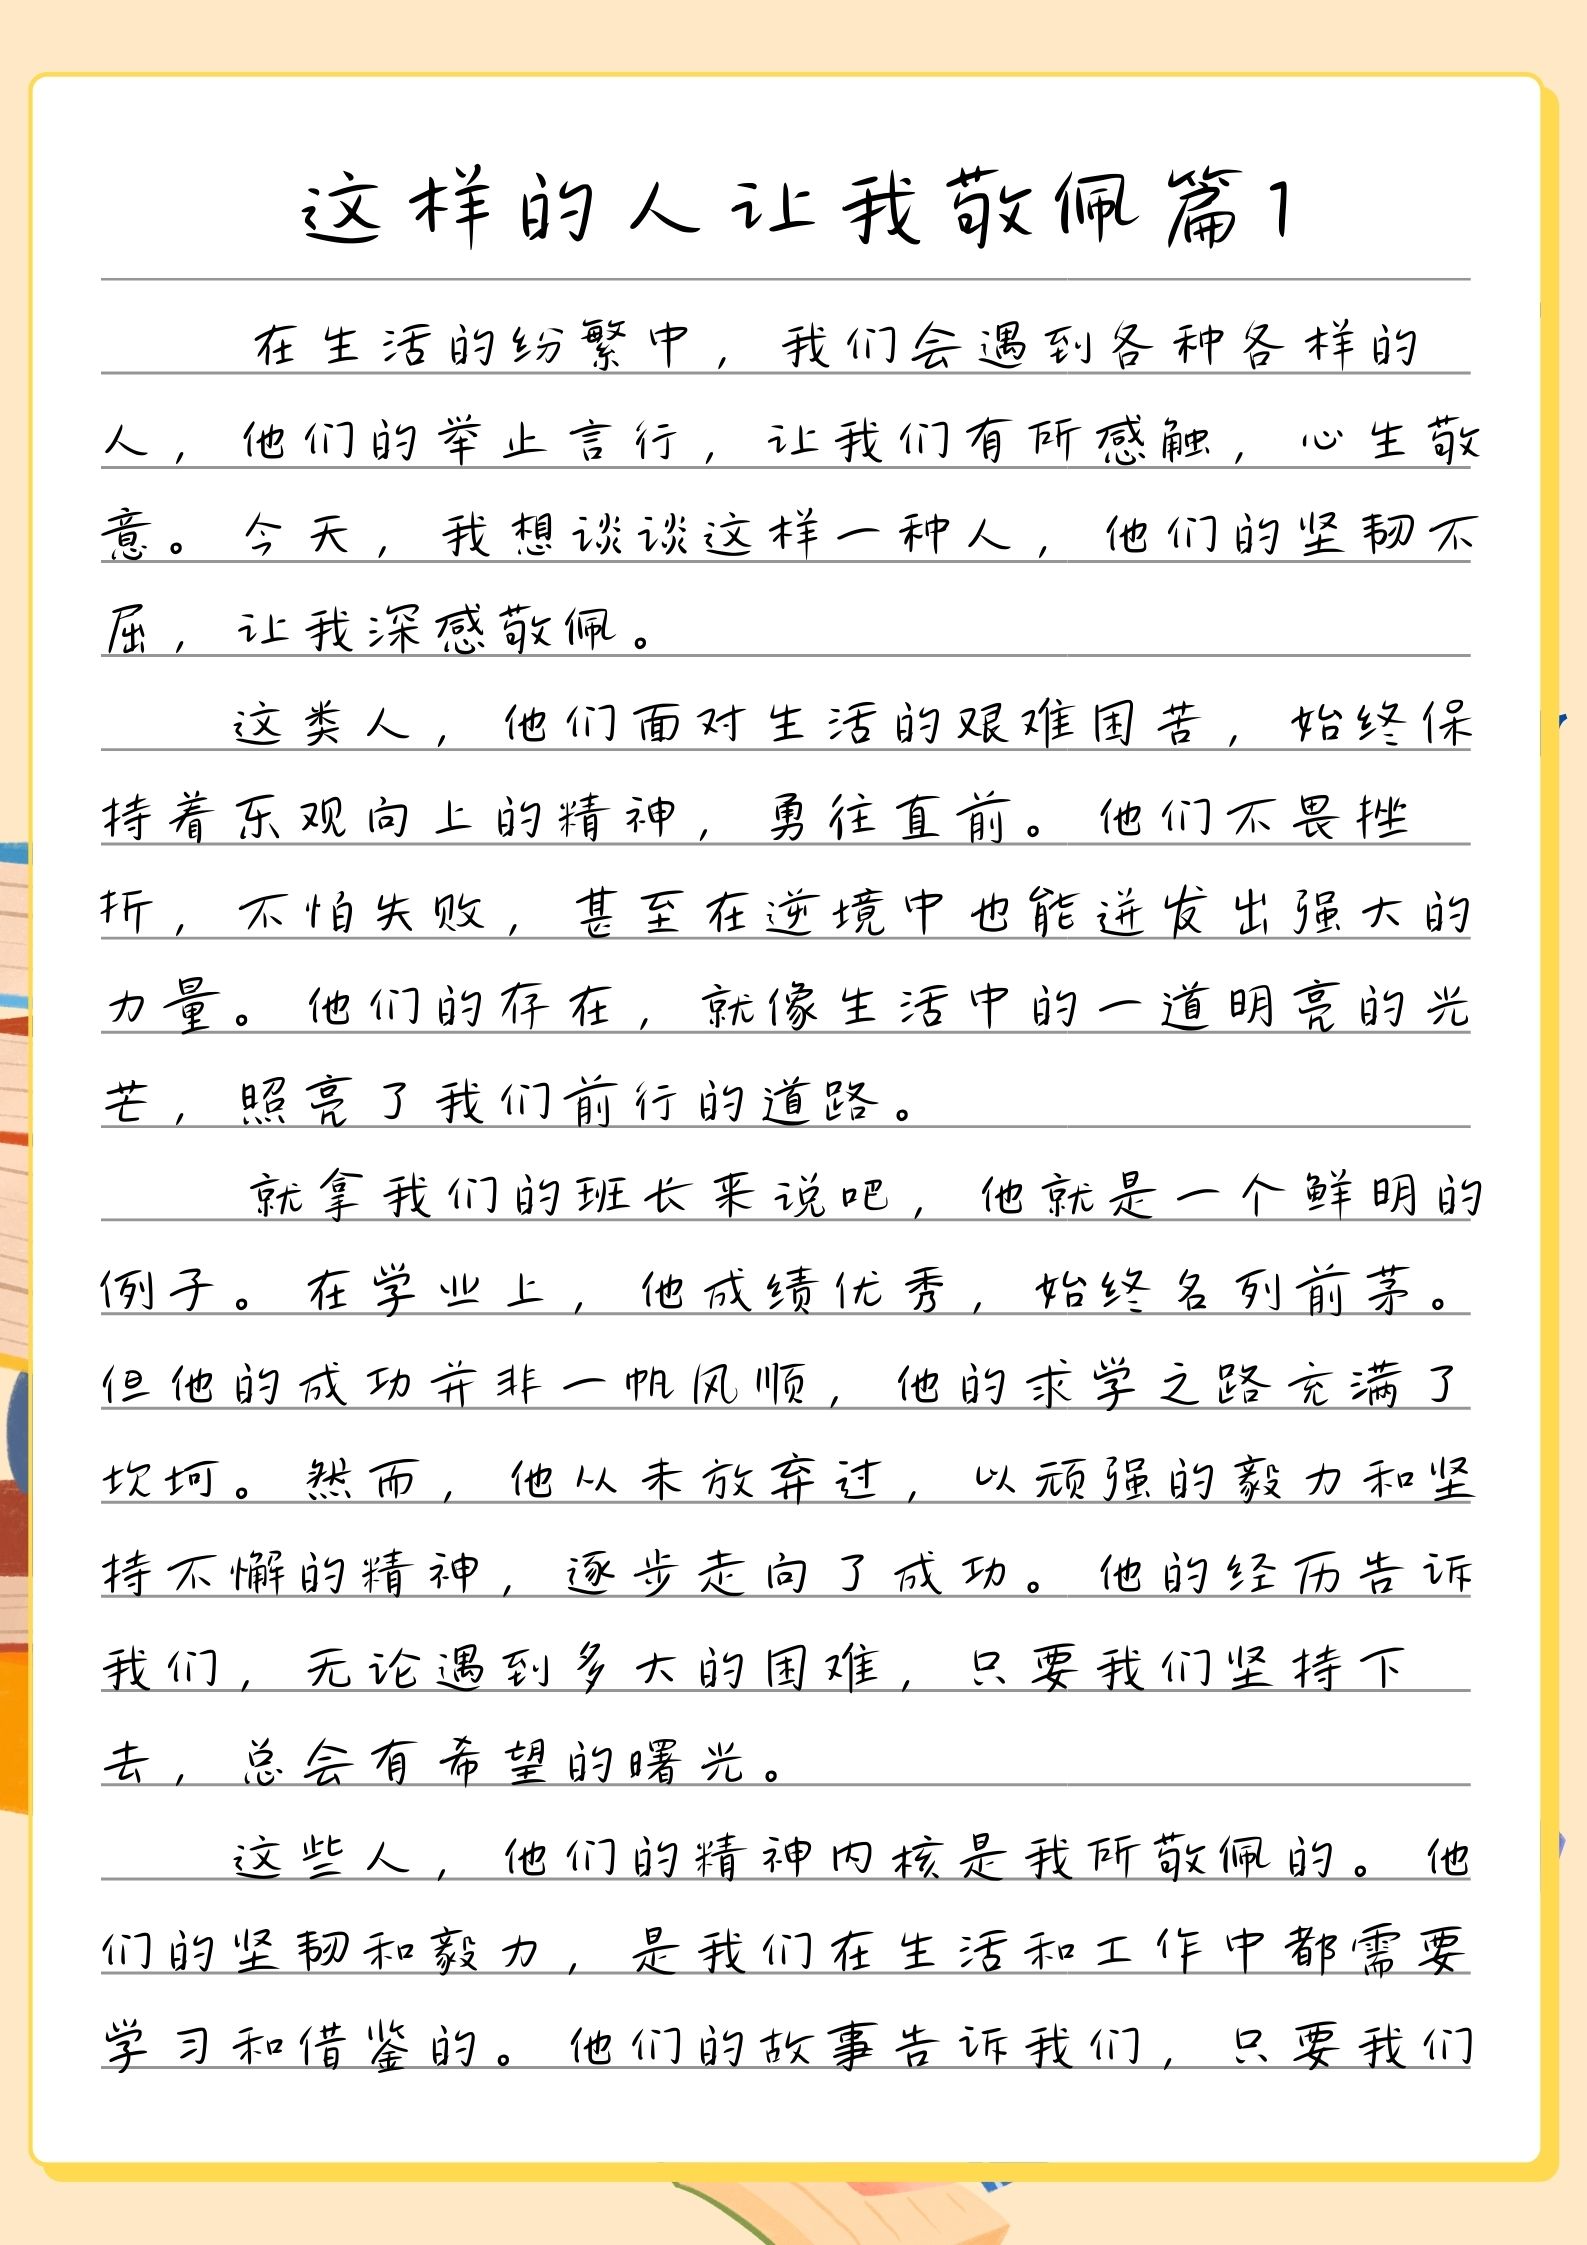 这样的人让我敬佩篇1
在生活的纷繁中，我们会遇到各种各样的
人，他们的举止言行，让我们有所感触，心生敬
意。今天，我想谈谈这样一种人，他们的坚韧不
屈，让我深感敬佩。
这类人，他们面对生活的艰难困苦，始终保
持着乐观向上的精神，勇往直前。他们不畏挫
折，不怕失败，甚至在逆境中也能迸发出强大的
力量。他们的存在，就像生活中的一道明亮的光
芒，照亮了我们前行的道路。
就拿我们的班长来说吧，他就是一个鲜明的
例子。在学业上，他成绩优秀，始终名列前茅。
但他的成功并非一帆风顺，他的求学之路充满了
坎坷。然而，他从未放弃过，以顽强的毅力和坚
持不懈的精神，逐步走向了成功。他的经历告诉
我们，无论遇到多大的困难，只要我们坚持下
去，总会有希望的曙光。
这些人，他们的精神内核是我所敬佩的。他
们的坚韧和毅力，是我们在生活和工作中都需要
学习和借鉴的。他们的故事告诉我们，只要我们